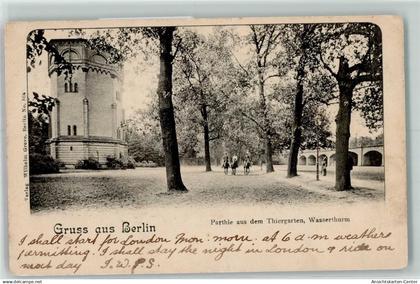 Verlag Wilhelm Greve, Berlin No. 104
Gruss aus Berlin
Parthie aus dem Thiergarten, Wasserthurm
I shall start for London Mon: morn: at 6 a.m. weather
permitting. I shall stay the night in London & ride on
most day I.W.P.S.
www.ansichtskarten-center.de